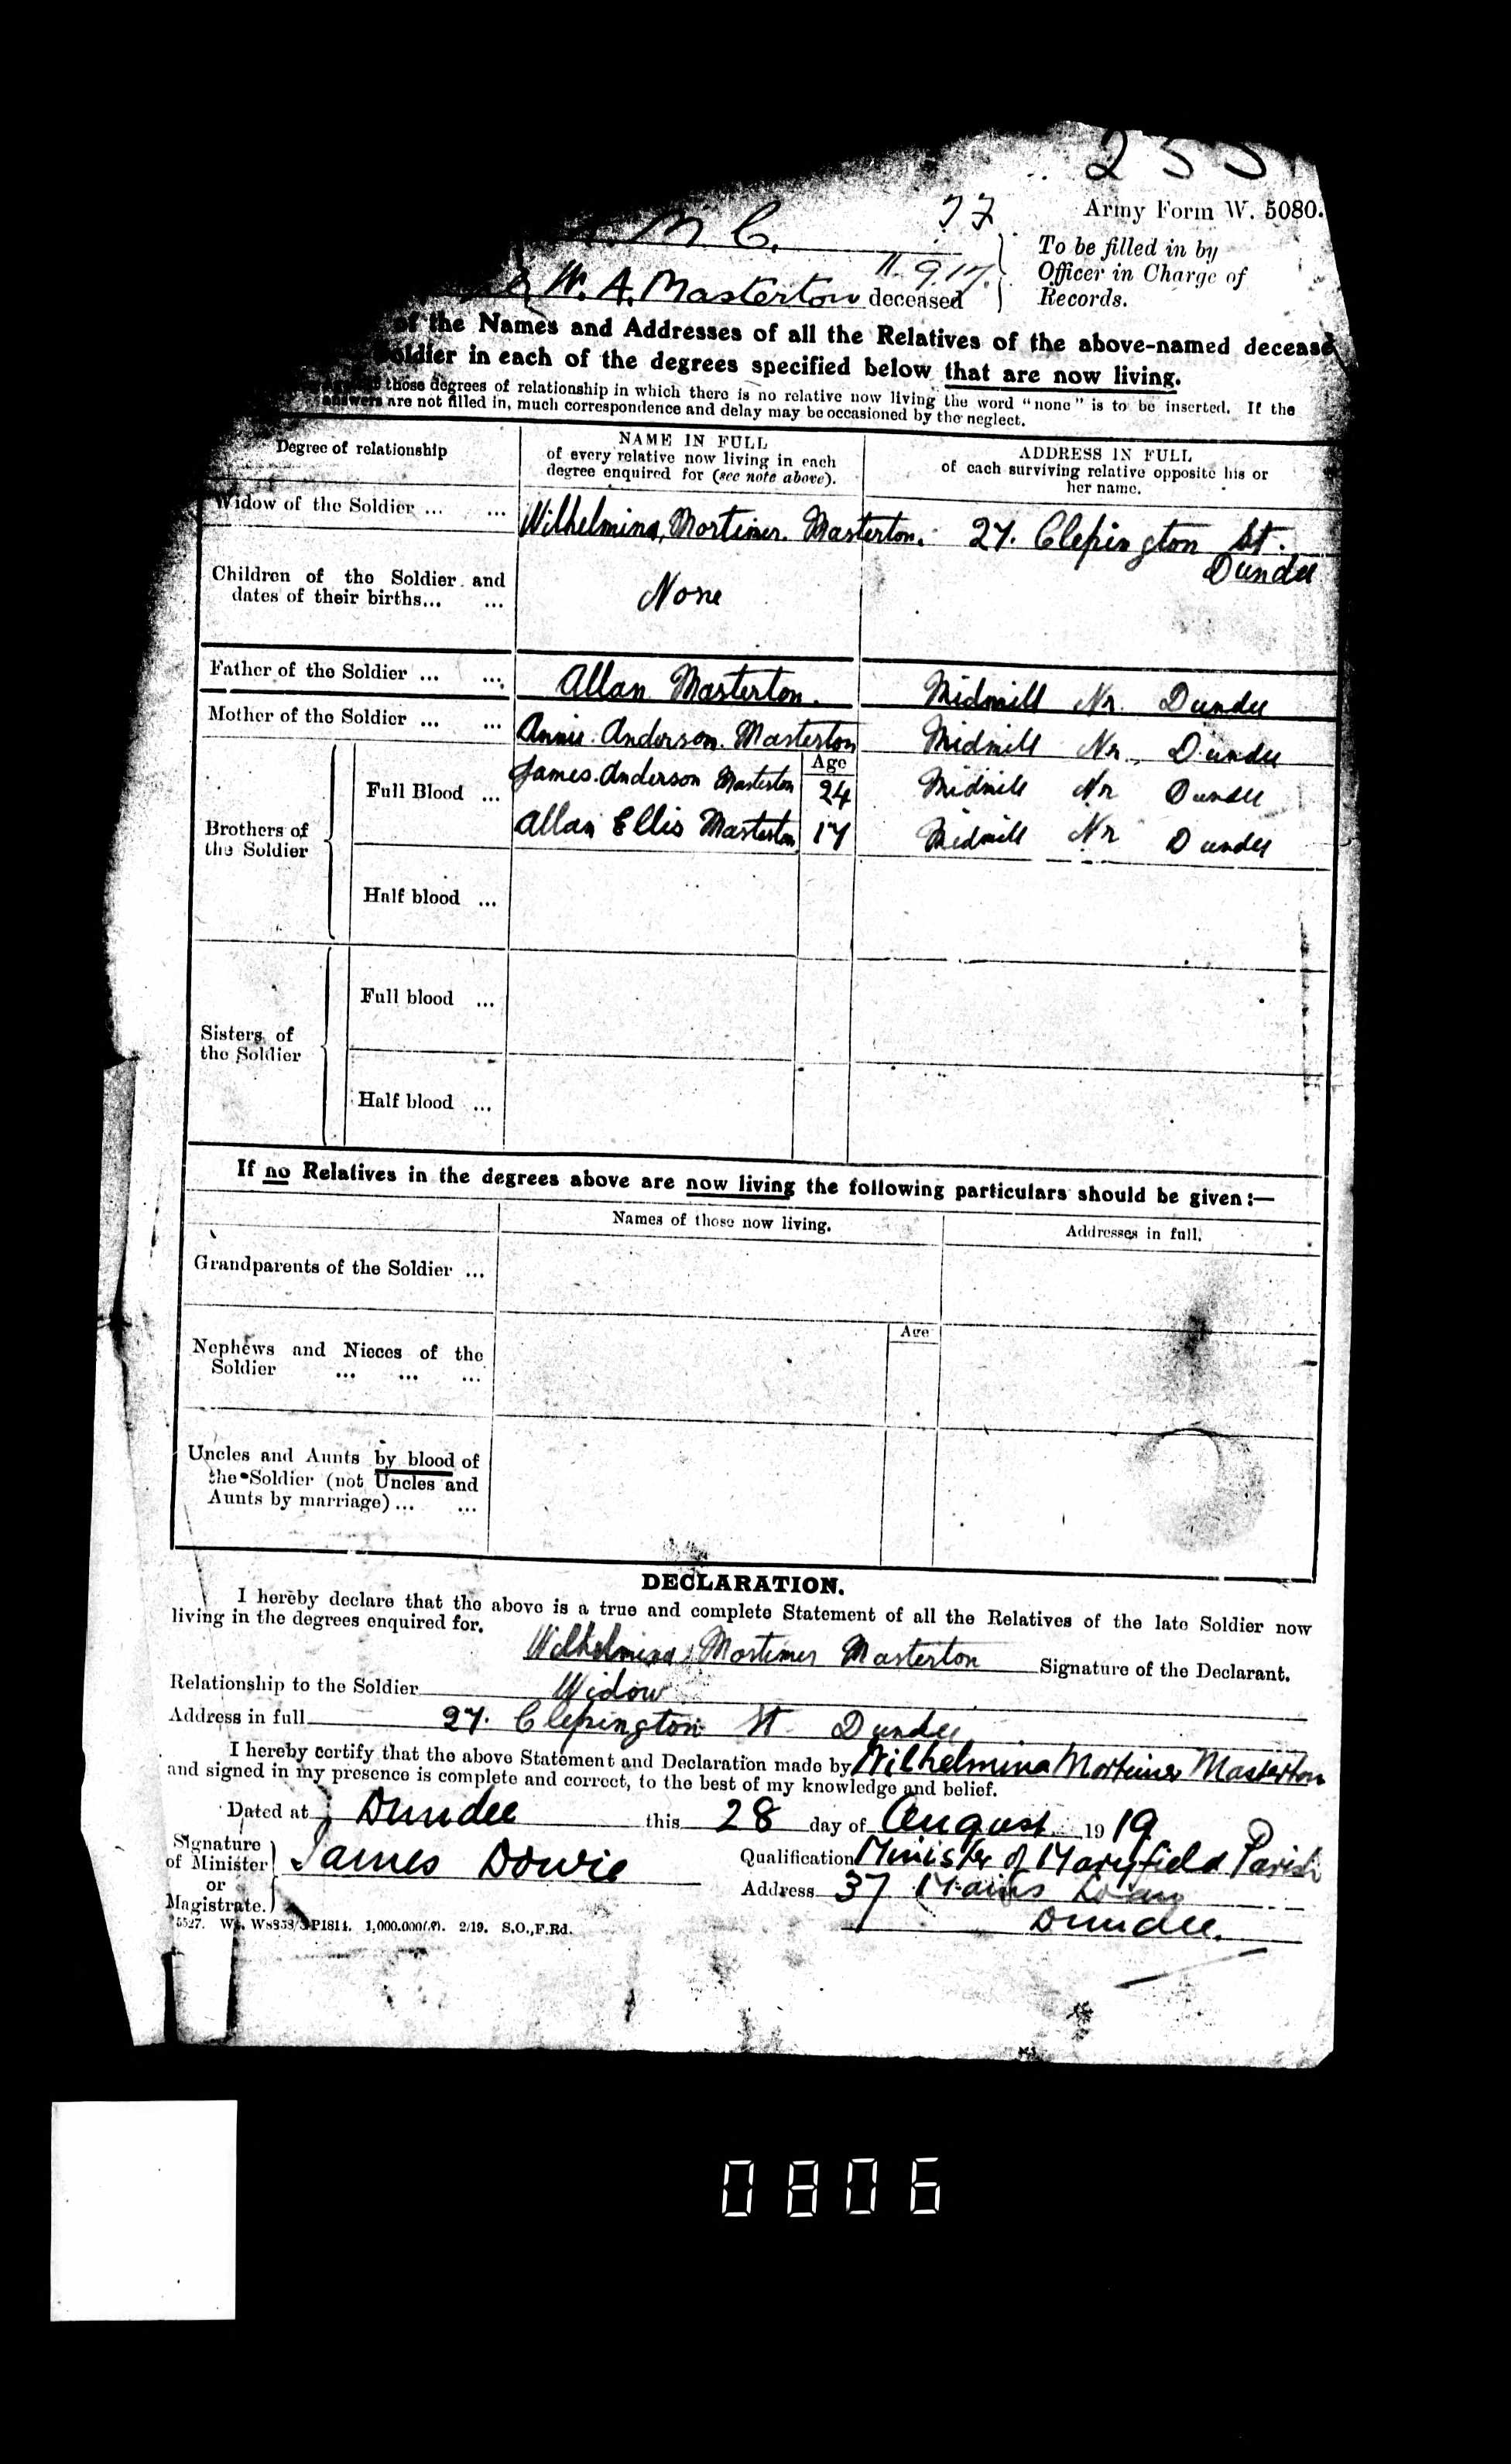 Army Form W. 5080.
M. C.
To be filled in by
Officer in Charge of
Records.
W. A. Masterton deceased 11.9.17.
of the Names and Addresses of all the Relatives of the above-named deceased
Soldier in each of the degrees specified below that are now living.
those degrees of relationship in which there is no relative now living the word "none" is to be inserted. If the
answers are not filled in, much correspondence and delay may be occasioned by the neglect.
Degree of relationship
NAME IN FULL
of every relative now living in each
degree enquired for (see note above).
ADDRESS IN FULL
of each surviving relative opposite his or
her name.
Widow of the Soldier ... ... Wilhelmina, Mortimer. Masterton. 27. Clepington St.
Dundee
Children of the Soldier and
dates of their births... ... None
Father of the Soldier ... ... Allan Masterton. Midmill Nr. Dundee
Mother of the Soldier ... ... Annie Anderson. Masterton Midmill Nr. Dundee
Age
Brothers of
the Soldier
Full Blood ... James. Anderson Masterton 24 Midmill Nr Dundee
Allan Ellis Masterton 17 Midmill Nr Dundee
Half blood ...
Sisters of
the Soldier
Full blood ...
Half blood ...
If no Relatives in the degrees above are now living the following particulars should be given:—
Names of those now living. Addresses in full.
Grandparents of the Soldier ...
Age
Nephews and Nieces of the
Soldier ... ... ...
Uncles and Aunts by blood of
the Soldier (not Uncles and
Aunts by marriage) ... ...
DECLARATION.
I hereby declare that the above is a true and complete Statement of all the Relatives of the late Soldier now
living in the degrees enquired for.
Wilhelmina Mortimer Masterton Signature of the Declarant.
Relationship to the Soldier Widow
Address in full 27. Clepington St Dundee
I hereby certify that the above Statement and Declaration made by Wilhelmina Mortimer Masterton
and signed in my presence is complete and correct, to the best of my knowledge and belief.
Dated at Dundee this 28 day of August 1919
Signature
of Minister
or
Magistrate.
James Dowie
Qualification Minister of Maryfield Parish
Address 37 Mains Loan
Dundee.
1,000,000 2/19. S.O.,F.Rd.
0806